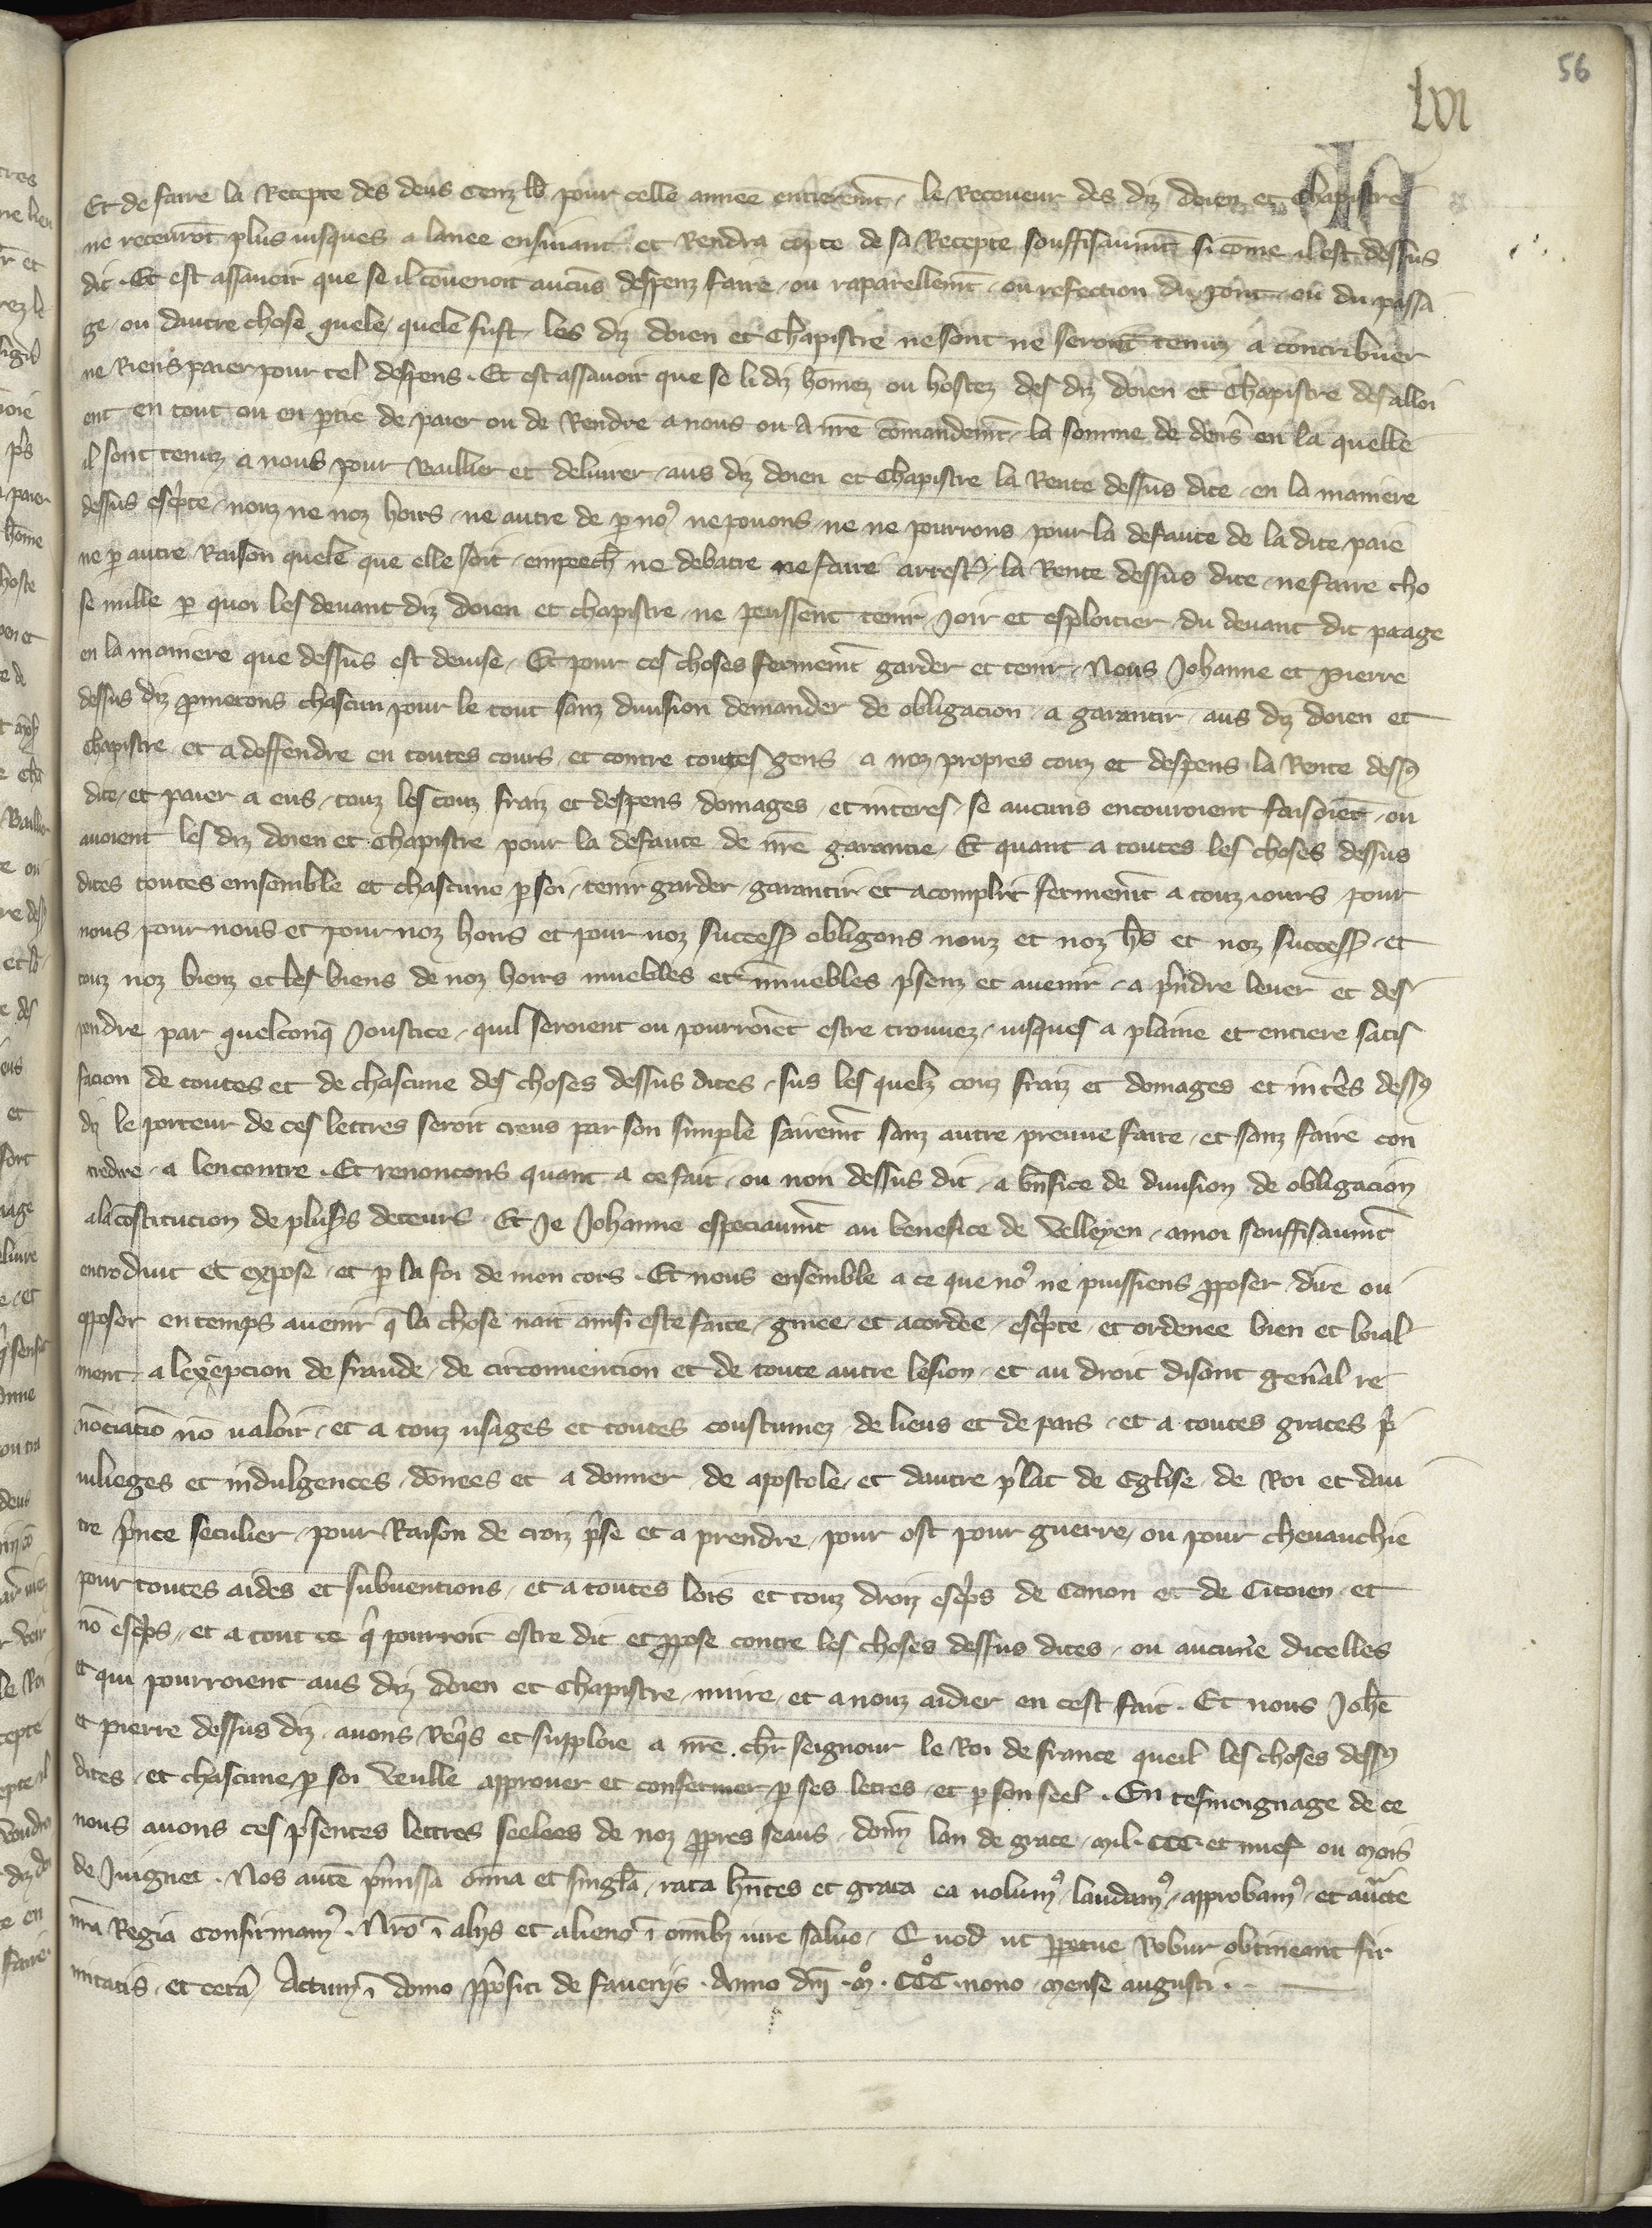 56
lvi
Et de faire la Recepte des deus cenz lb pour celle annee entierem̄t. le Receueur des diz doien et Chapistre
ne receuroit plus iusques a lanee ensiuant et Rendra cōpte de sa Recepte souffisaum̄t si cōme il est dessus
dit. Et est assauoir que se il cōuenoit aucūs despenz faire. ou raparellem̄t. ou refection du pont. ou du passa
ge. ou dautre chose quele quele fust. les diz doien et Chapistre ne sont ne seront tenuz a contribuer
ne Riens paier pour tel despens. Et est assauoir que se li diz hōmez ou hostez des diz doien et Chapistre defalloi
ent en tout ou en ptie de paier ou de Rendre a nous ou a nr̄e cōmandem̄t. la somme de den̄s en la quelle
il sont tenuz a nous pour Baillier et deliurer. aus diz doien et Chapistre la Rente dessus dite. en la maniere
dessus esc̄pte. nouz ne noz hoirs. ne autre de p noꝰ ne pouons. ne ne pourrons pour la defaute de la dite paie
ne p autre Raison quele que elle soit. empeech̄ ne debatre ne faire arrest. la Rente dessus dite. ne faire cho
se nulle p quoi les deuant diz doien et chapistre. ne peussent tenir Joir et esploitier. du deuant dit paage
en la maniere que dessus est deuise. Et pour ces choses fermem̄t garder et tenir. Nous Johanne et Pierre
dessus diz pmetons chascun pour le tout sanz diuision demander de obligacion. a garantir. aus diz doien et
Chapistre et a deffendre en toutes cours. et contre toutes gens. a noz propres couz et despens. la Rente dessꝰ
dite. et paier a eus. touz les couz fraiz et despens domages. et interes. se aucuns encouroient faisoiēt. ou
auoient les diz doien et Chapistre pour la defaute de nr̄e garantie. Et quant a toutes les choses dessus
dites toutes ensemble et chascune p soi. tenir garder. garantir et acomplir fermem̄t a touz iours. pour
nous pour nous et pour noz hoirs et pour noz success̄ obligons nouz et noz hs̄ et noz success̄. et
touz noz bienz et les biens de noz hoirs muebles et nmuebles p̄senz et auenir. a p̄ndre leuer et des
pendre par quelconq̄ Joustice. quil seroient ou pourroiēt estre trouuez. iusques a plaine et entiere satis
facion de toutes et de chascune des choses dessus dites. sus les quelz couz fraiz et domages et intēs dessꝰ
diz le porteur de ces lettres seroit creus par son simple sairem̄t sanz autre preuue faite. et sanz faire con
tredire. a lencontre. Et renoncons quant a ce fait. ou non dessus dit. a bn̄fice de diuision de obligacion
a la cōstitucion de plusꝰs deteurs. Et Je Johanne especiaum̄t au benefice de Velleyen. a moi souffisaum̄t
entroduit et expose. et p la foi de mon cors. Et nous ensemble a ce que noꝰ ne puissiens pposer dire ou
opposer en temps auenir q̄ la chose nait ainsi este faite. gniee. et acordee. esc̄pte. et ordenee bien et loial
ment. a lexepcion de fraude. de circonuention et de toute autre lesion. et au droit disant gen̄al re
nōciatiō nō ualoir. et a touz usages et toutes coustumez de lieus et de pais. et a toutes graces p̄
uilieges et indulgences. dōnees et a donner de apostole. et dautre p̄lat de Eglise. de Roi et dau
tre p̄nce seculier. pour Raison de croiz p̄se et a prendre. pour ost pour guerre. ou pour cheuauchie
pour toutes aides et subuentions. et a toutes lois et touz droiz esc̄ps de Canon et de Citoien. et
nō esc̄ps. et a tout ce q̄ pourroit estre dit et ppose contre les choses dessus dites. ou aucune dicelles
et qui pourroient aus diz doien et Chapistre. nuire. et a nouz aidier en cest fait. Et nous Joh̄e
et Pierre dessus diz. auons Req̄s et supploie a nr̄e ch̄r seignour le Roi de france queil les choses dessꝰ
dites. et chascune p soi Veulle approuer et confermer p ses letres. et p son seel. En tesmoignage de ce
nous auons ces p̄sentes lettres seelees de noz ppres seaus. donn̄ lan de grace. mil. CCC. et nuef ou mois
de Juignet. Nos autē p̄missa om̄ia et singl̄a. rata hn̄tes et grata ea uolumꝰ. laudamꝰ. approbamꝰ. et auc̄te
nr̄a Regia confirmamꝰ. Nr̄o ī alijs et alieno ī om̄ibꝫ iure saluo. Quod ut ppetue Robur obtineant fir
mitatis. et cetā. Actum ī domo ppositi de Faueriis. Anno dn̄i. mͦ. CCCͦ. nono. mense augusti.